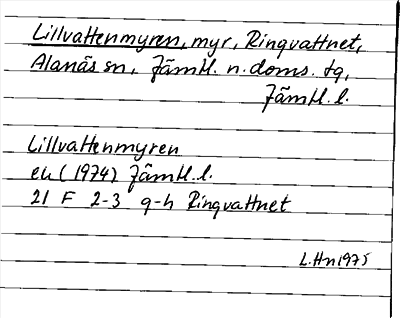 Lillvattenmyren, myr, Ringvattnet,
Alanäs sn, Jämtl. n. doms. tg,
Jämtl. l.
Lillvattenmyren
ek (1974) Jämtl. l.
21 F 2-3 g-h Ringvattnet
L.Hn 1975